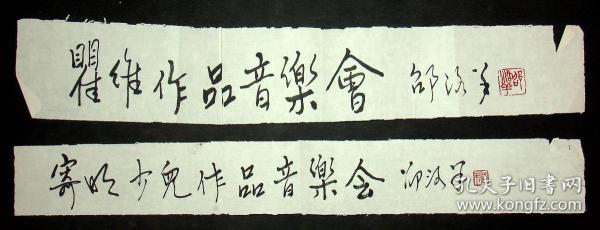 瞿維作品音樂會 邵洛羊
寄明少兒作品音樂会 邵洛羊
孔夫子旧书网
www.kongfz.com